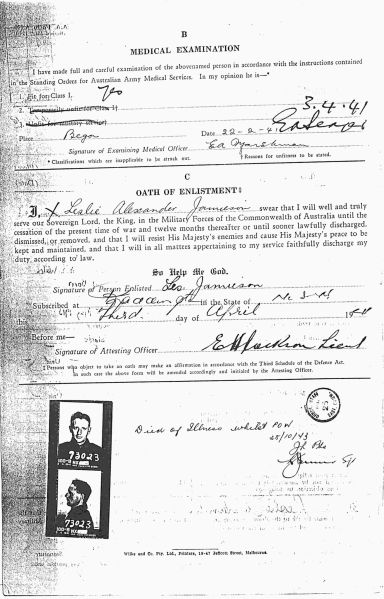 B
MEDICAL EXAMINATION
I have made full and careful examination of the abovenamed person in accordance with the instructions contained
in the Standing Orders for Australian Army Medical Services. In my opinion he is—*
1. Fit for Class I. Yes
2. Temporarily unfit for Class I†
3. Unfit for military service†
3.4.41
Place Bega Date 22-2-41
Signature of Examining Medical Officer
* Classifications which are inapplicable to be struck out. † Reasons for unfitness to be stated.
C
OATH OF ENLISTMENT‡
I, Leslie Alexander Jamieson swear that I will well and truly
serve our Sovereign Lord, the King, in the Military Forces of the Commonwealth of Australia until the
cessation of the present time of war and twelve months thereafter or until sooner lawfully discharged,
dismissed, or removed, and that I will resist His Majesty's enemies and cause His Majesty's peace to be
kept and maintained, and that I will in all matters appertaining to my service faithfully discharge my
duty, according to law.
So Help Me God.
Signature of Person Enlisted Les Jamieson
Subscribed at in the State of N.S.W.
this Third day of April 1941
Before me—
Signature of Attesting Officer E H Jackson Lieut
‡ Persons who object to take an oath may make an affirmation in accordance with the Third Schedule of the Defence Act.
In such case the above form will be amended accordingly and initialed by the Attesting Officer.
73023
73023
Died of Illness whilst POW
25/10/43
Wilke and Co. Pty. Ltd., Printers, 19-47 Jeffcott Street, Melbourne.